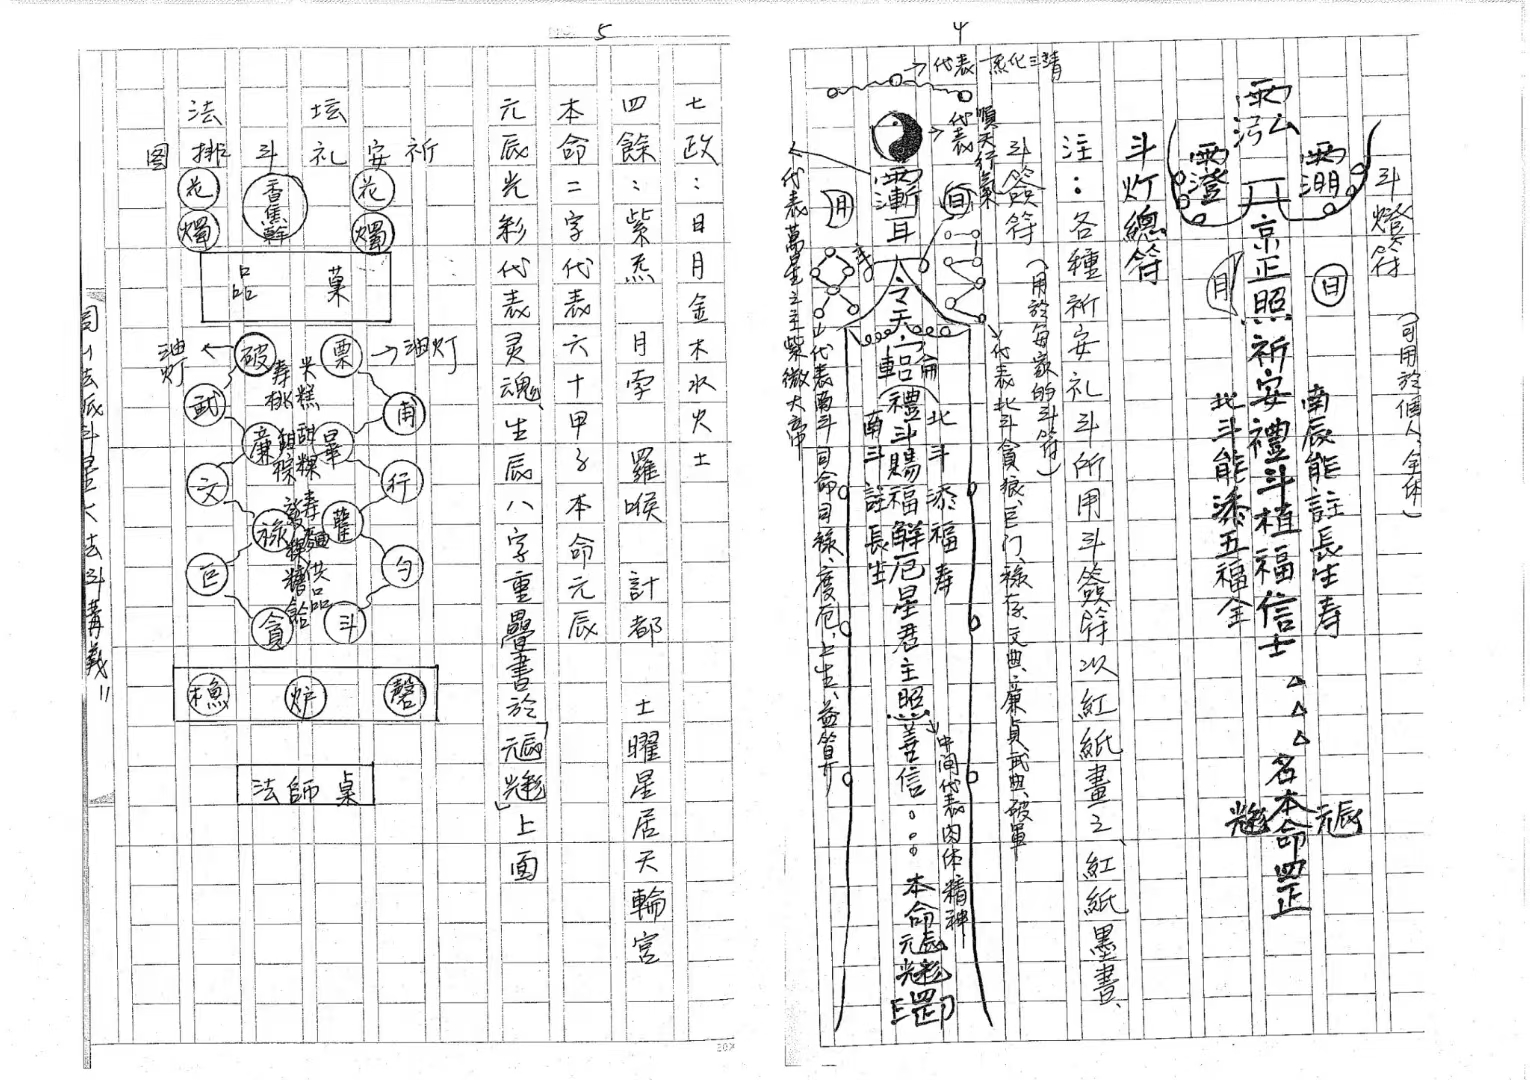 4
斗燈符（可用於個人、全体）
南辰能註長生寿
日
京正照祈安禮斗植福信士△△△名本命罡
元辰光彩
北斗能添五福全
月
斗灯總符
注：各種祈安礼斗所用斗簽符以紅紙畫之、紅紙墨書、
斗簽符（用於每家的斗符）
→代表一炁化三清
代表順天行氣
代表北斗貪狼、巨门、祿存、文曲、廉貞、武曲、破軍
日
月
北斗添福寿
禮斗賜福解厄星君主照善信。。。本命元辰光彩罡
南斗註長生
中间代表肉体精神
代表南斗司命、司祿、度厄、上生、益算
代表萬星之主紫微大帝
5
七政：日月金木水火土
四餘：紫炁　月孛　羅㬋　計都　土曜星居天輪宮
本命二字代表六十甲子本命元辰
元辰光彩代表灵魂、生辰八字重疊書於「元辰光彩」上面
祈安礼斗排图
法坛
花　香蕉餅　花
燭　燭
菓品
油灯←破　票→油灯
武　甫
廉　畢
文　行
祿　雚
巨　勺
貪　斗
米糕　甜粿　寿麵　供品
寿桃
木魚　炉　磬
法師桌